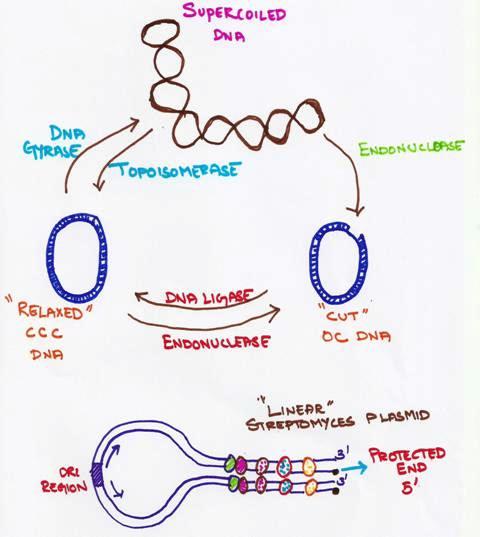 SUPERCOILED
DNA
DNA
GYRASE
TOPOISOMERASE
ENDONUCLEASE
DNA LIGASE
ENDONUCLEASE
"RELAXED"
CCC
DNA
"CUT"
OC DNA
"LINEAR"
STREPTOMYCES PLASMID
ORI
REGION
3'
3'
PROTECTED
END
5'